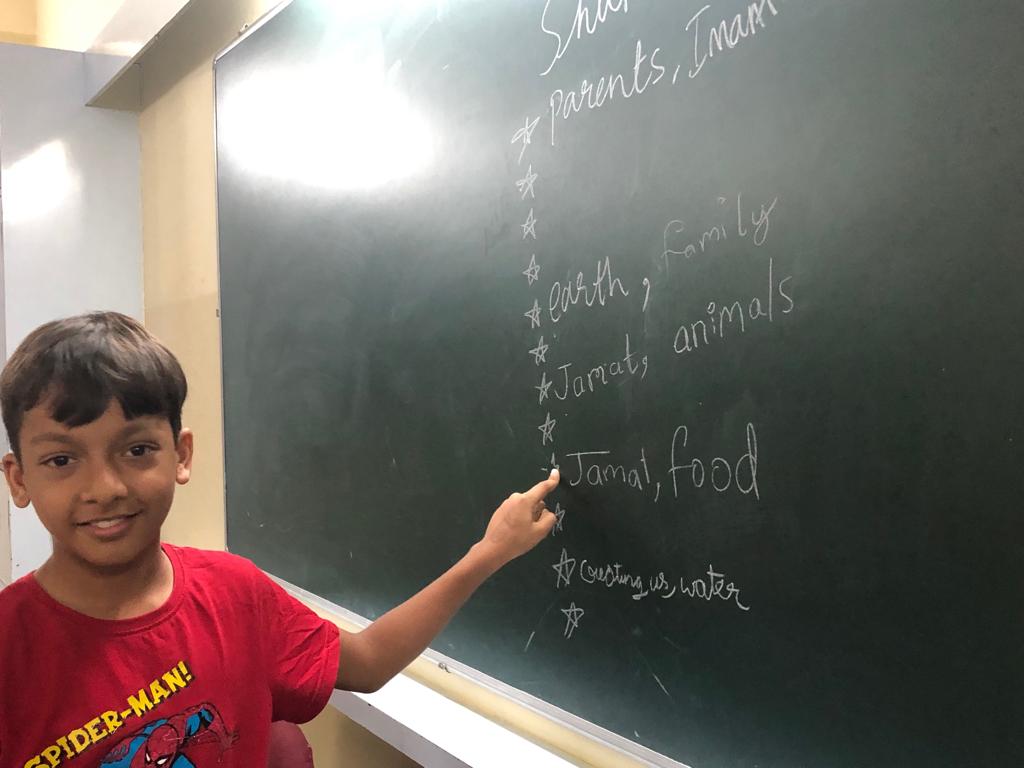 Parents, Imam
earth, family
Jamat, animals
Jamat, food
Creating us, water
SPIDER-MAN!